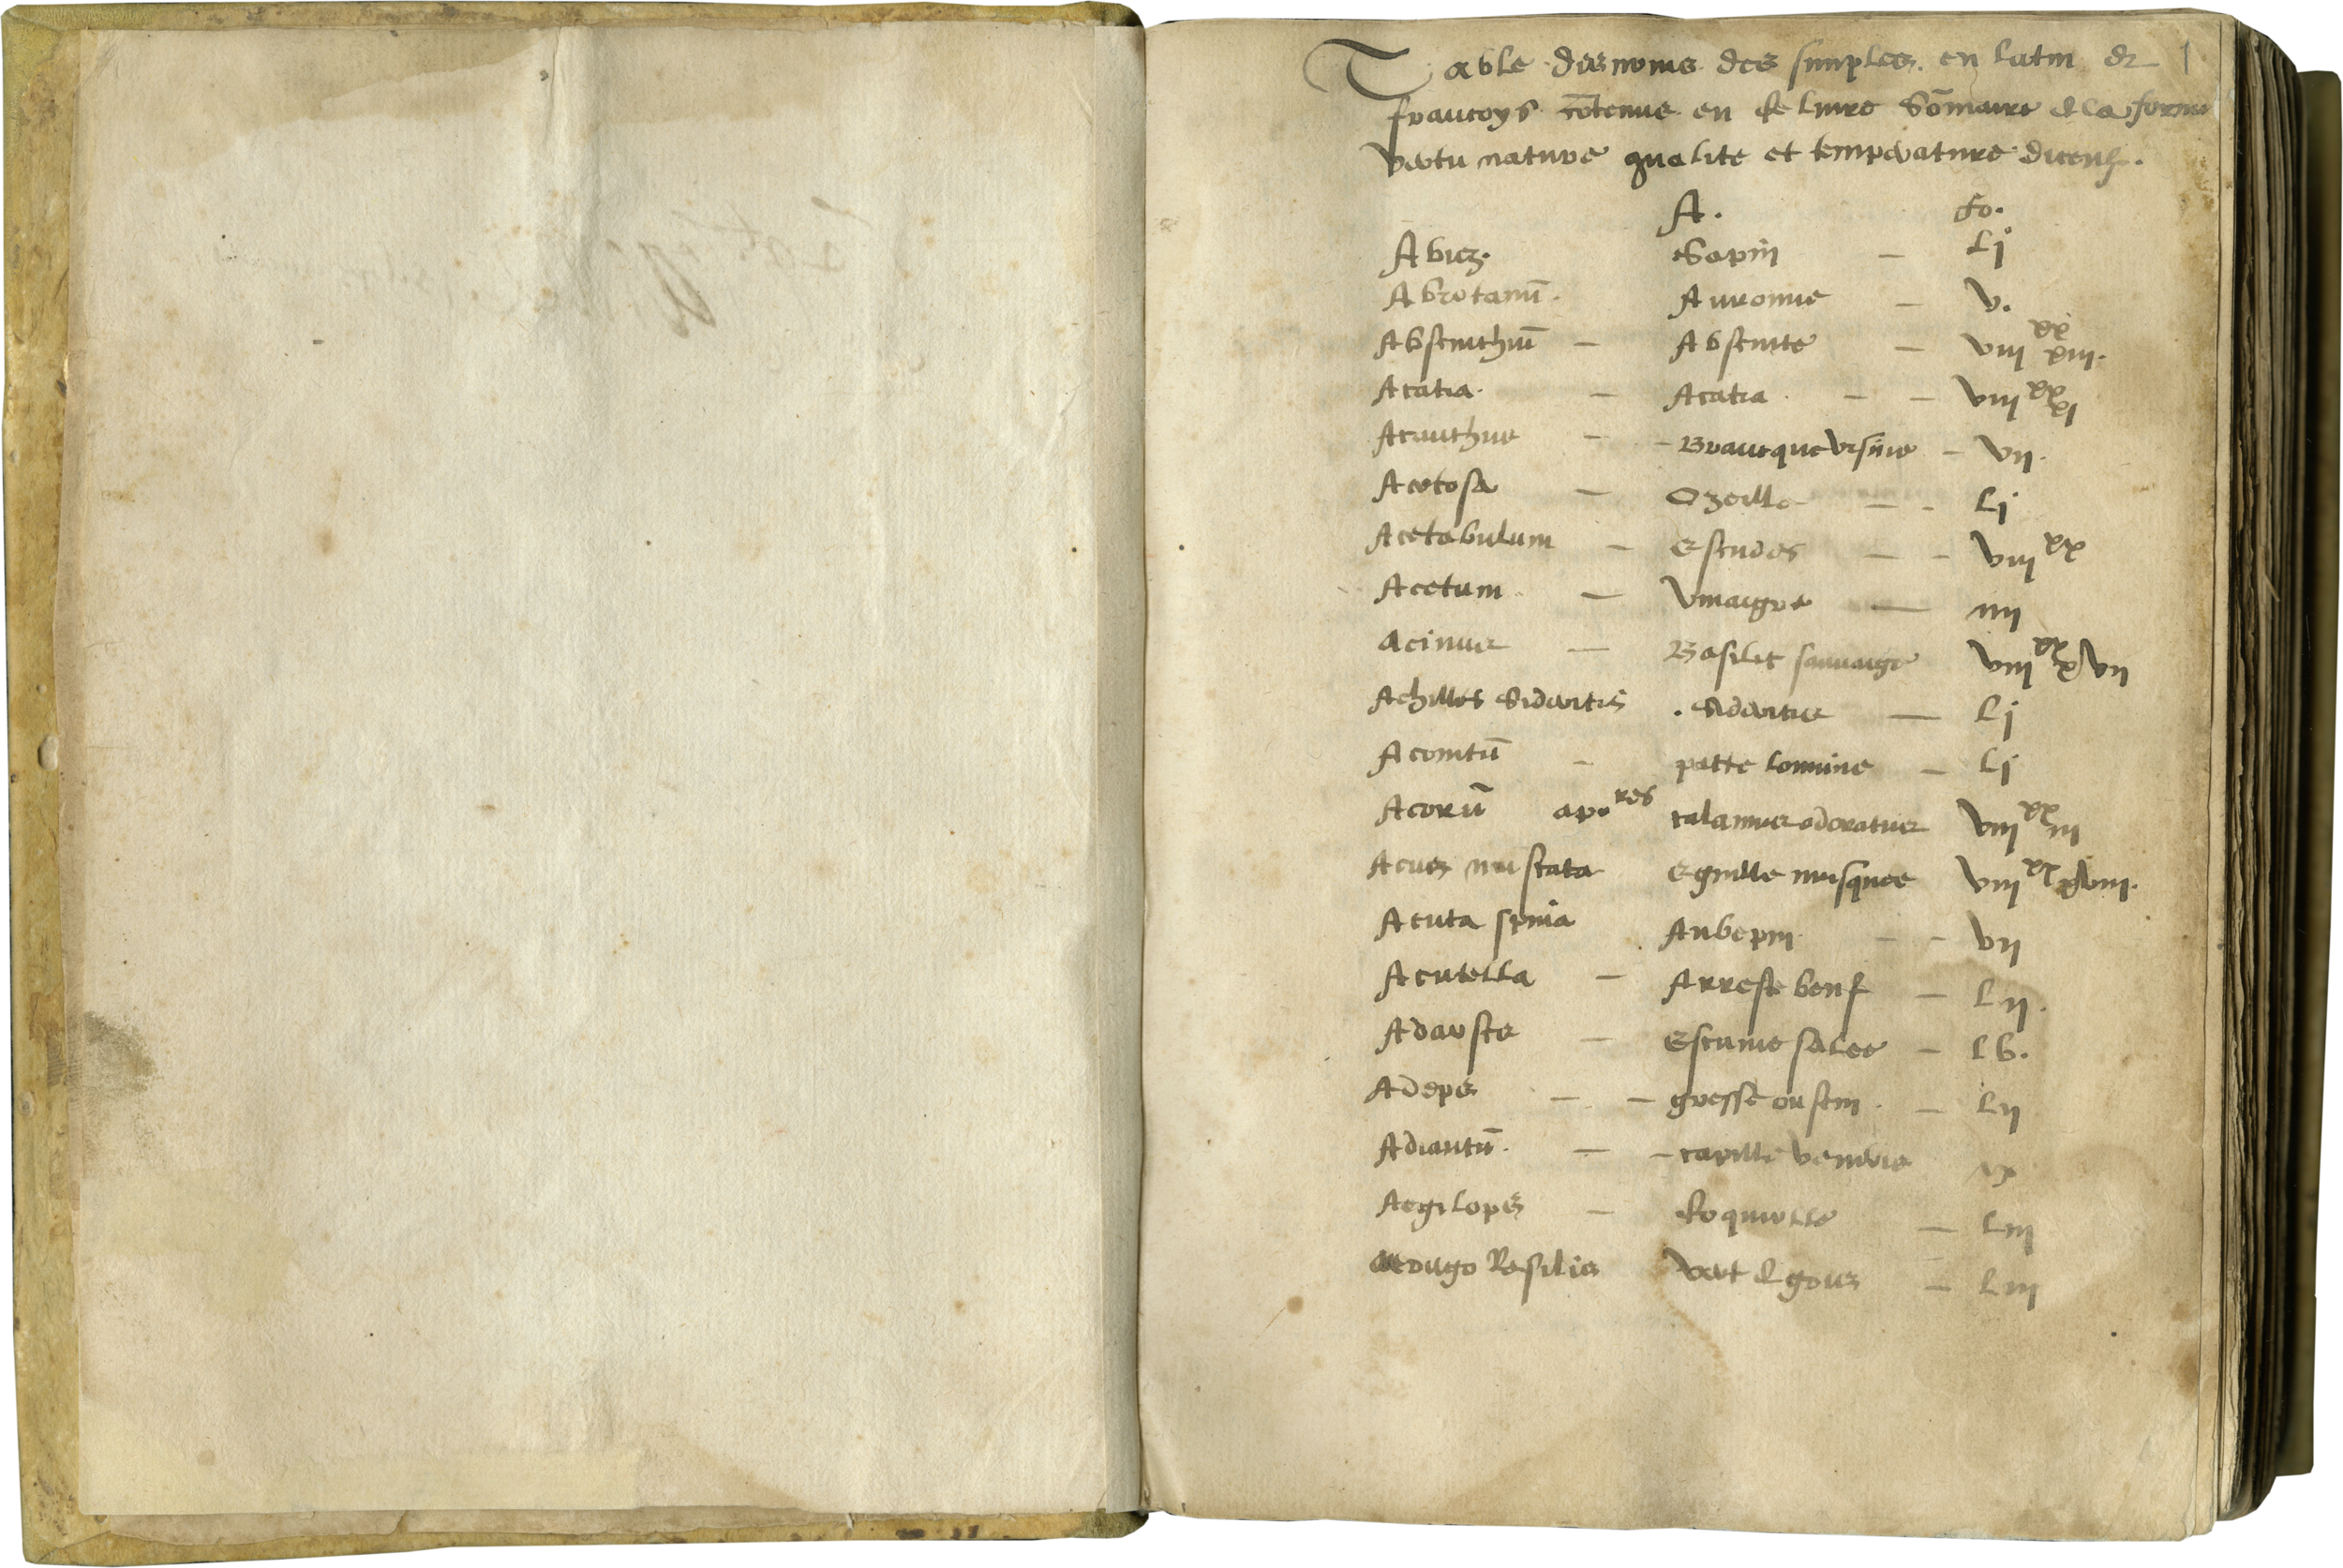 Table des noms des simples en latin & 1
francoys cõtenus en ce livre Sõmaire de la forme
vertu nature qualite et temperature diceulx.
A. fo.
Abies. Sapin — Lj
Abrotanũ. Auronne — v.
Absinthiũ — Absinte — viij xx xiij.
Acatia. — Acatia — — viij xx xj
Acanthus — - Brancque ursine — vij.
Acetosa — Ozeille — - Lj
Acetabulum — Escudes — - viij xx
Acetum — Vinaigre — iiij
Acinus — Basilic sauvaige viij xx xvij
Achilles Sideritis . Sideritis — Lj
Aconitũ - patte louvine — Lj
Acorũ apo res calamus odoratus viij xx iij
Acus muscata Eguille musquee viij xx xviij.
Acuta spina Aubepin — - vij
Acutella — Arreste beuf — Lij.
Adarsce — Escume salee — Lv.
Adeps — — gresse ou sein . — Lij
Adiantũ. — - capille veneris ix
Aegilops — Coquiolle — Liij
Aerugo Rasilis Vert de grus — Liij